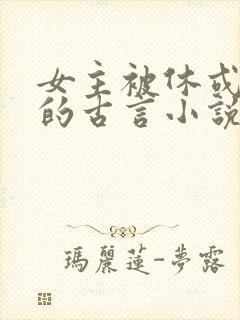 女主被休或
的古言小說
瑪麗蓮-夢露